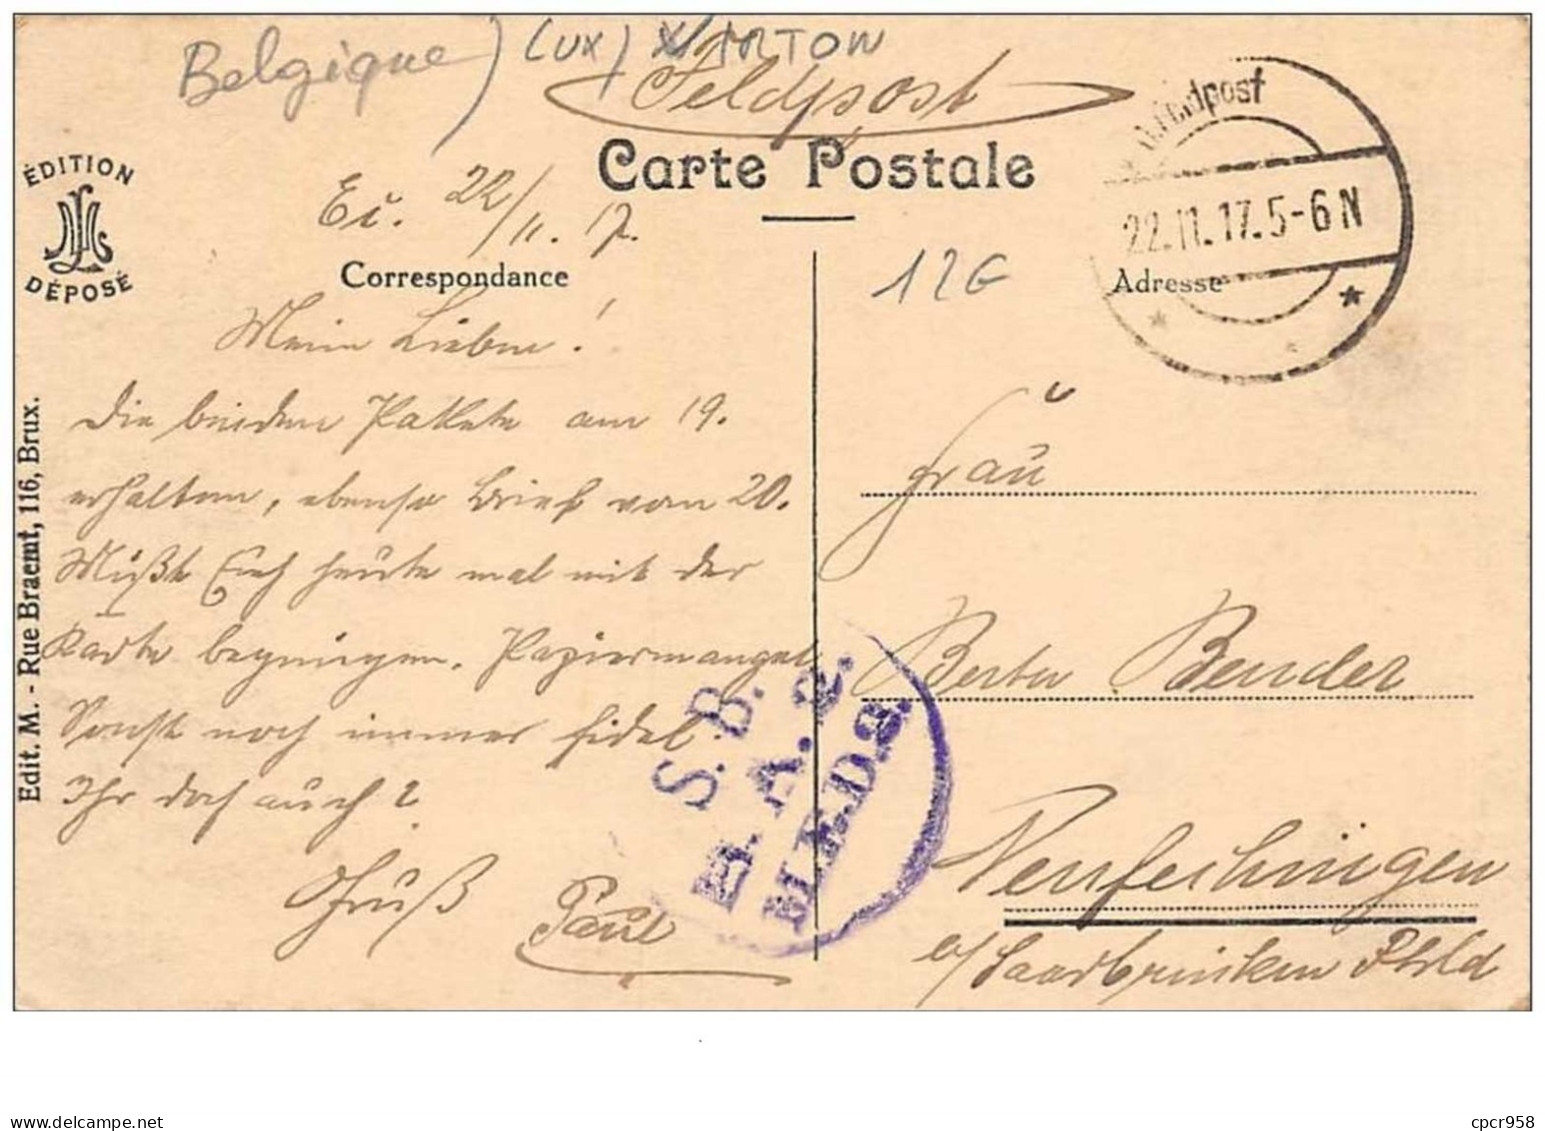 Belgique) (Lux) VIRTON
Feldpost
Carte Postale
ÉDITION
DÉPOSÉ
Feldpost
22.11.17.5-6N
22/11.17.
12G
Correspondance
Adresse
Meine Lieben!
Die beiden Pakete am 19.
erhalten, ebenso Brief vom 20.
Müßt Euch heute mal mit der
Karte begnügen. Papiermangel
Sonst noch immer fidel
Ihr doch auch?
Gruß Paul
Frau
Berta Bender
Neufechingen
b/Saarbrücken Rhld
S. B.
M.E.D.S.
Edit. M. - Rue Braemt, 116, Brux.
www.delcampe.net
cpcr958